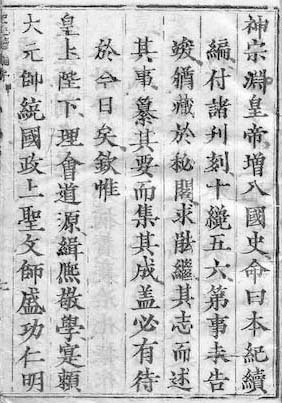 神宗淵皇帝增入國史命曰本紀續
編付諸刋刻十纔五六第事未告
竣猶藏於秘閣求能繼其志而述
其事纂其要而集其成盖必有待
於今日矣欽惟
皇上陛下理會道源緝熈敬學寔賴
大元帥統國政上聖父師盛功仁明